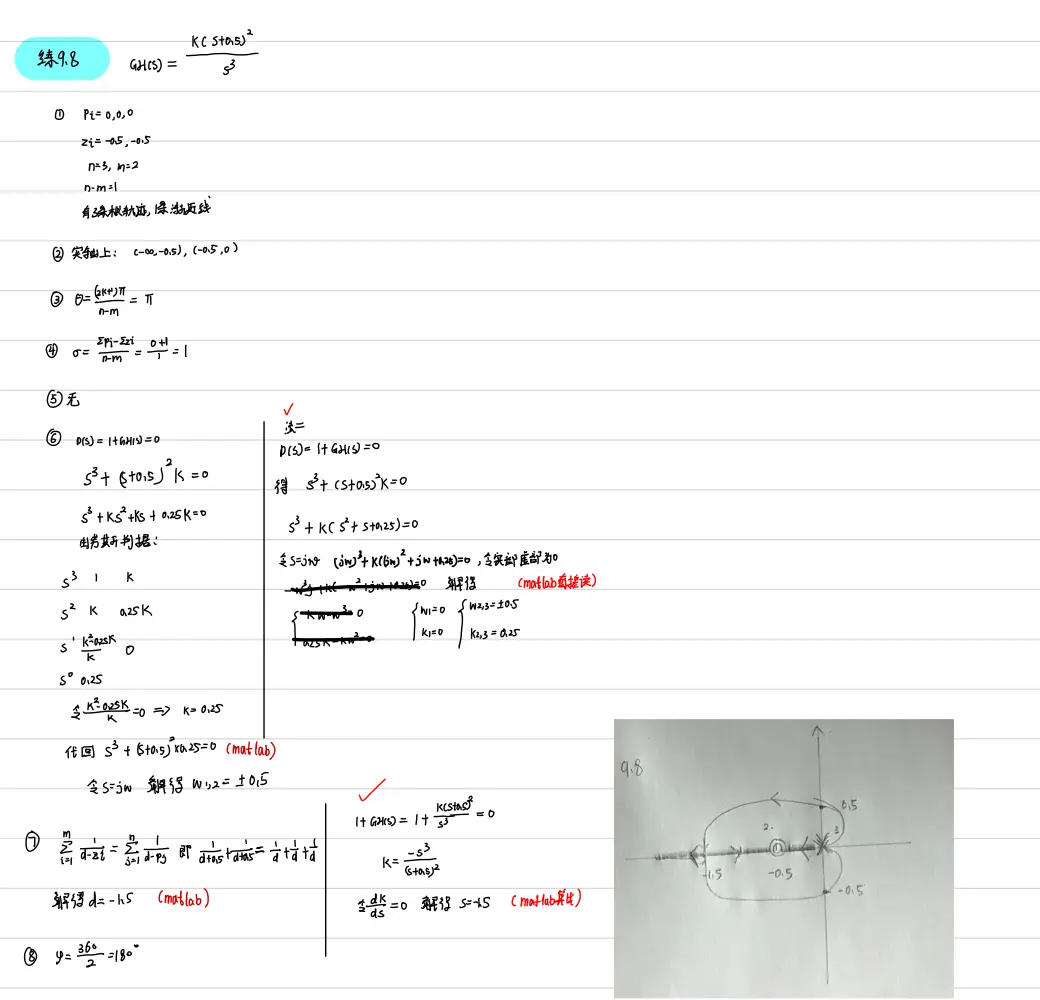 练9.8
GH(s) = K(s+0.5)² / s³
① Pi = 0,0,0
zi = -0.5, -0.5
n=3, m=2
n-m=1
有3条根轨迹, 1条渐近线
② 实轴上: (-∞,-0.5), (-0.5,0)
③ θ = (2k+1)π / n-m = π
④ σ = ΣPj-Σzi / n-m = 0+1 / 1 = 1
⑤ 无
⑥ D(s) = 1+GH(s) = 0
s³ + (s+0.5)²K = 0
s³ + Ks² + Ks + 0.25K = 0
由劳斯判据:
s³ 1 K
s² K 0.25K
s¹ K²-0.25K / K 0
s⁰ 0.25
令 K²-0.25K / K = 0 => K = 0.25
代回 s³ + (s+0.5)²×0.25 = 0 (matlab)
令s=jw 解得 w1,2 = ±0.5
✓
法二
D(s) = 1+GH(s) = 0
得 s³ + (s+0.5)²K = 0
s³ + K(s²+s+0.25) = 0
令s=jw (jw)³ + K((jw)² + jw + 0.25) = 0, 令实部虚部为0
解得 (matlab直接读)
{ w1=0 K1=0 { w2,3=±0.5 K2,3=0.25
⑦ Σ(i=1..m) 1/(d-zi) = Σ(j=1..n) 1/(d-Pj) 即 1/(d+0.5) + 1/(d+0.5) = 1/d + 1/d + 1/d
解得 d = -1.5 (matlab)
✓
1+GH(s) = 1 + K(s+0.5)² / s³ = 0
K = -s³ / (s+0.5)²
令 dK/ds = 0 解得 s=-1.5 (matlab算出)
⑧ φ = 360 / 2 = 180°
9.8
0.5
2.
3
-1.5
-0.5
-0.5